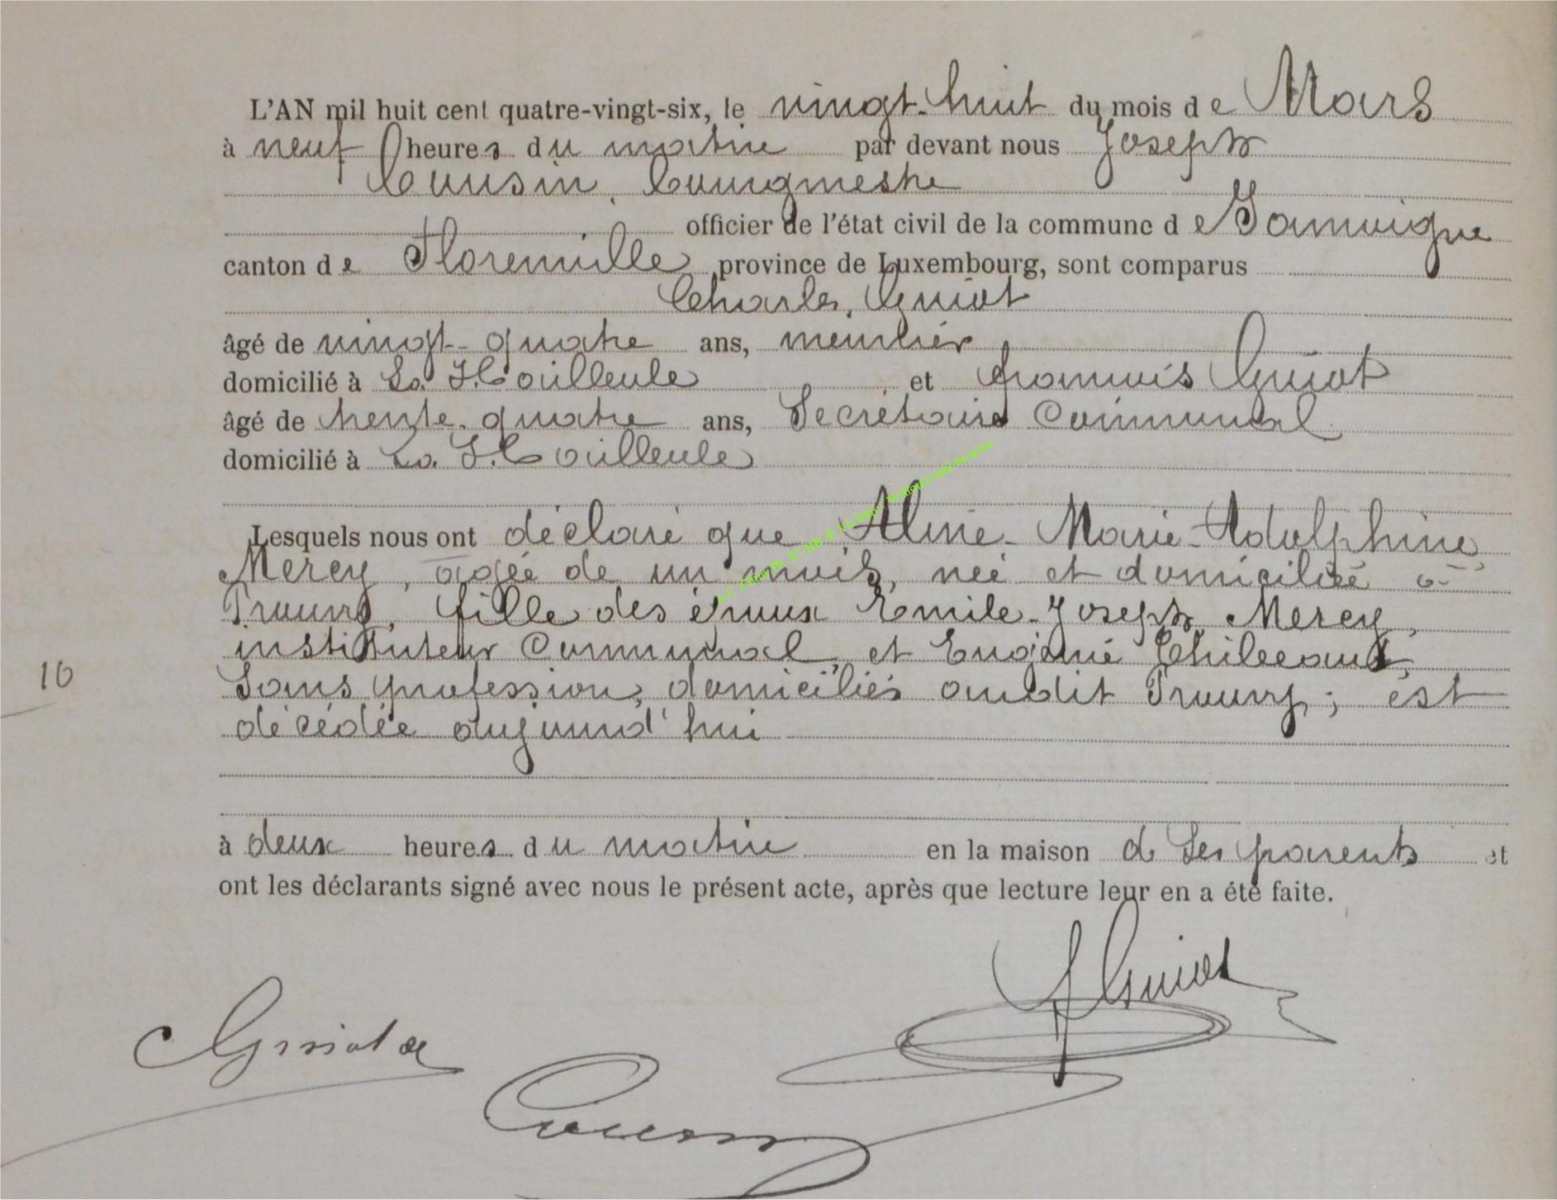 L'AN mil huit cent quatre-vingt-six, le vingt-huit du mois de Mars
à neuf heures du matin par devant nous Joseph
Cousin, bourgmestre
officier de l'état civil de la commune de Jamoigne
canton de Florenville province de Luxembourg, sont comparus
Charles, Guiot
âgé de vingt-quatre ans, meunier
domicilié à La Hailleule et François Guiot
âgé de trente-quatre ans, Secrétaire Communal
domicilié à La Hailleule
Lesquels nous ont déclaré que Aline-Marie-Adolphine
Merey, agée de un mois, née et domiciliée à
Prouvy, fille des époux Emile-Joseph Merey,
instituteur Communal, et Eugénie
Sans profession, domiciliés audit Prouvy; est
décédée aujourd'hui
10
à deux heures du matin en la maison de Ses parents et
ont les déclarants signé avec nous le présent acte, après que lecture leur en a été faite.
F Guiot
Guiot
Cousin